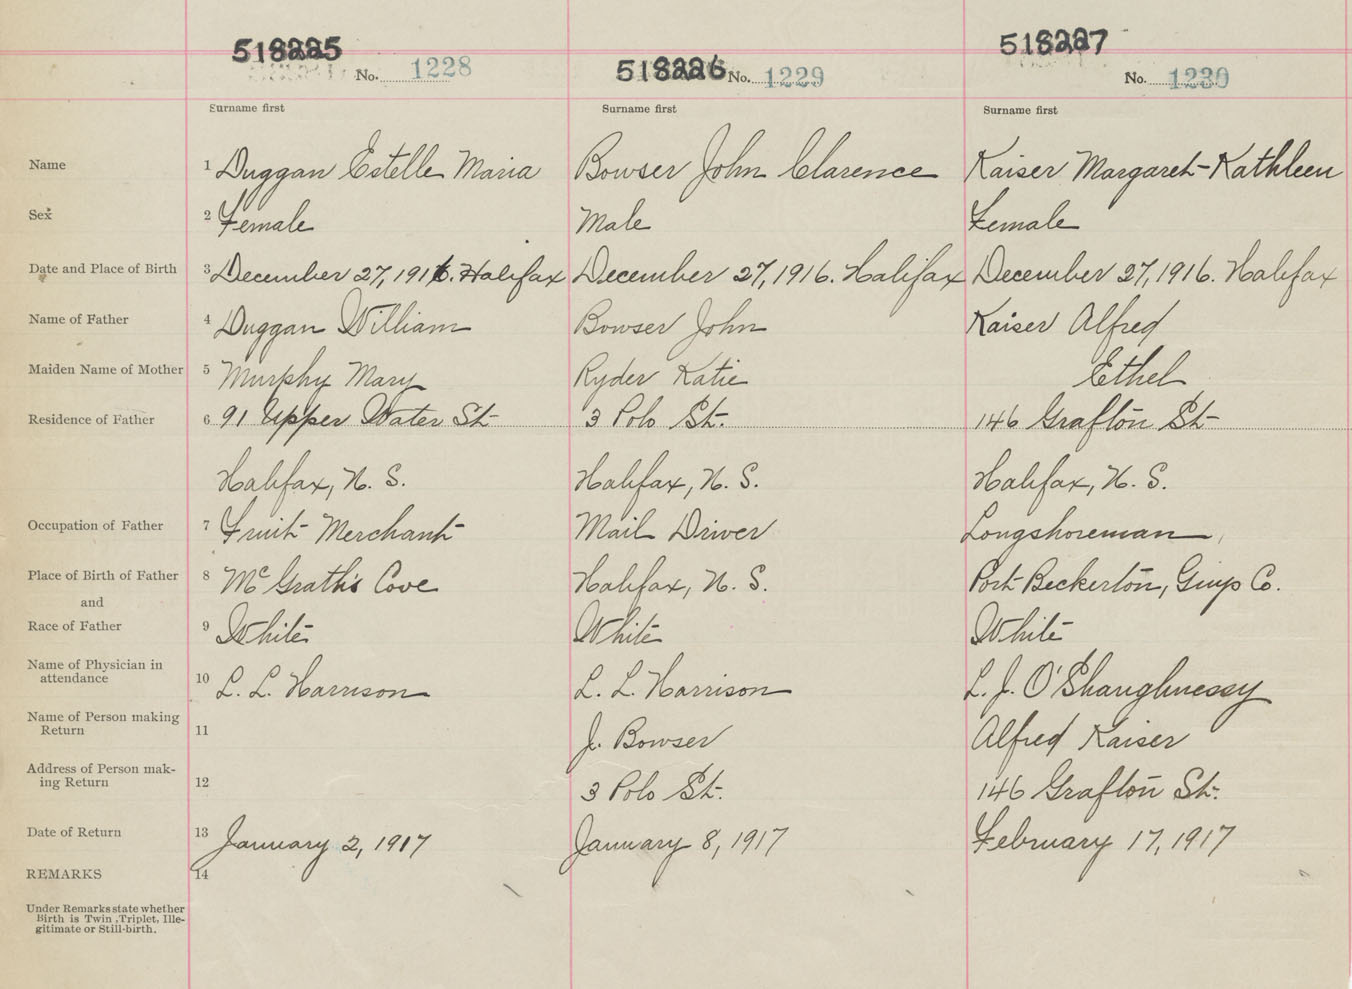 518225 518226 518227
No. 1228 No. 1229 No. 1230
Surname first Surname first Surname first
Name 1 Duggan Estelle Maria Bowser John Clarence Kaiser Margaret-Kathleen
Sex 2 Female Male Female
Date and Place of Birth 3 December 27, 1916. Halifax December 27, 1916. Halifax December 27, 1916. Halifax
Name of Father 4 Duggan William Bowser John Kaiser Alfred
Maiden Name of Mother 5 Murphy Mary Ryder Katie Ethel
Residence of Father 6 91 Upper Water St 3 Polo St. 146 Grafton St
Halifax, N. S. Halifax, N. S. Halifax, N. S.
Occupation of Father 7 Fruit Merchant Mail Driver Longshoreman
Place of Birth of Father 8 McGrath's Cove Halifax, N. S. Port Beckerton, Guys Co.
and
Race of Father 9 White White White
Name of Physician in
attendance 10 L. L. Harrison L. L. Harrison L. J. O'Shaughnessy
Name of Person making
Return 11 J. Bowser Alfred Kaiser
Address of Person mak-
ing Return 12 3 Polo St. 146 Grafton St.
Date of Return 13 January 2, 1917 January 8, 1917 February 17, 1917
REMARKS 14
Under Remarks state whether
Birth is Twin, Triplet, Ille-
gitimate or Still-birth.